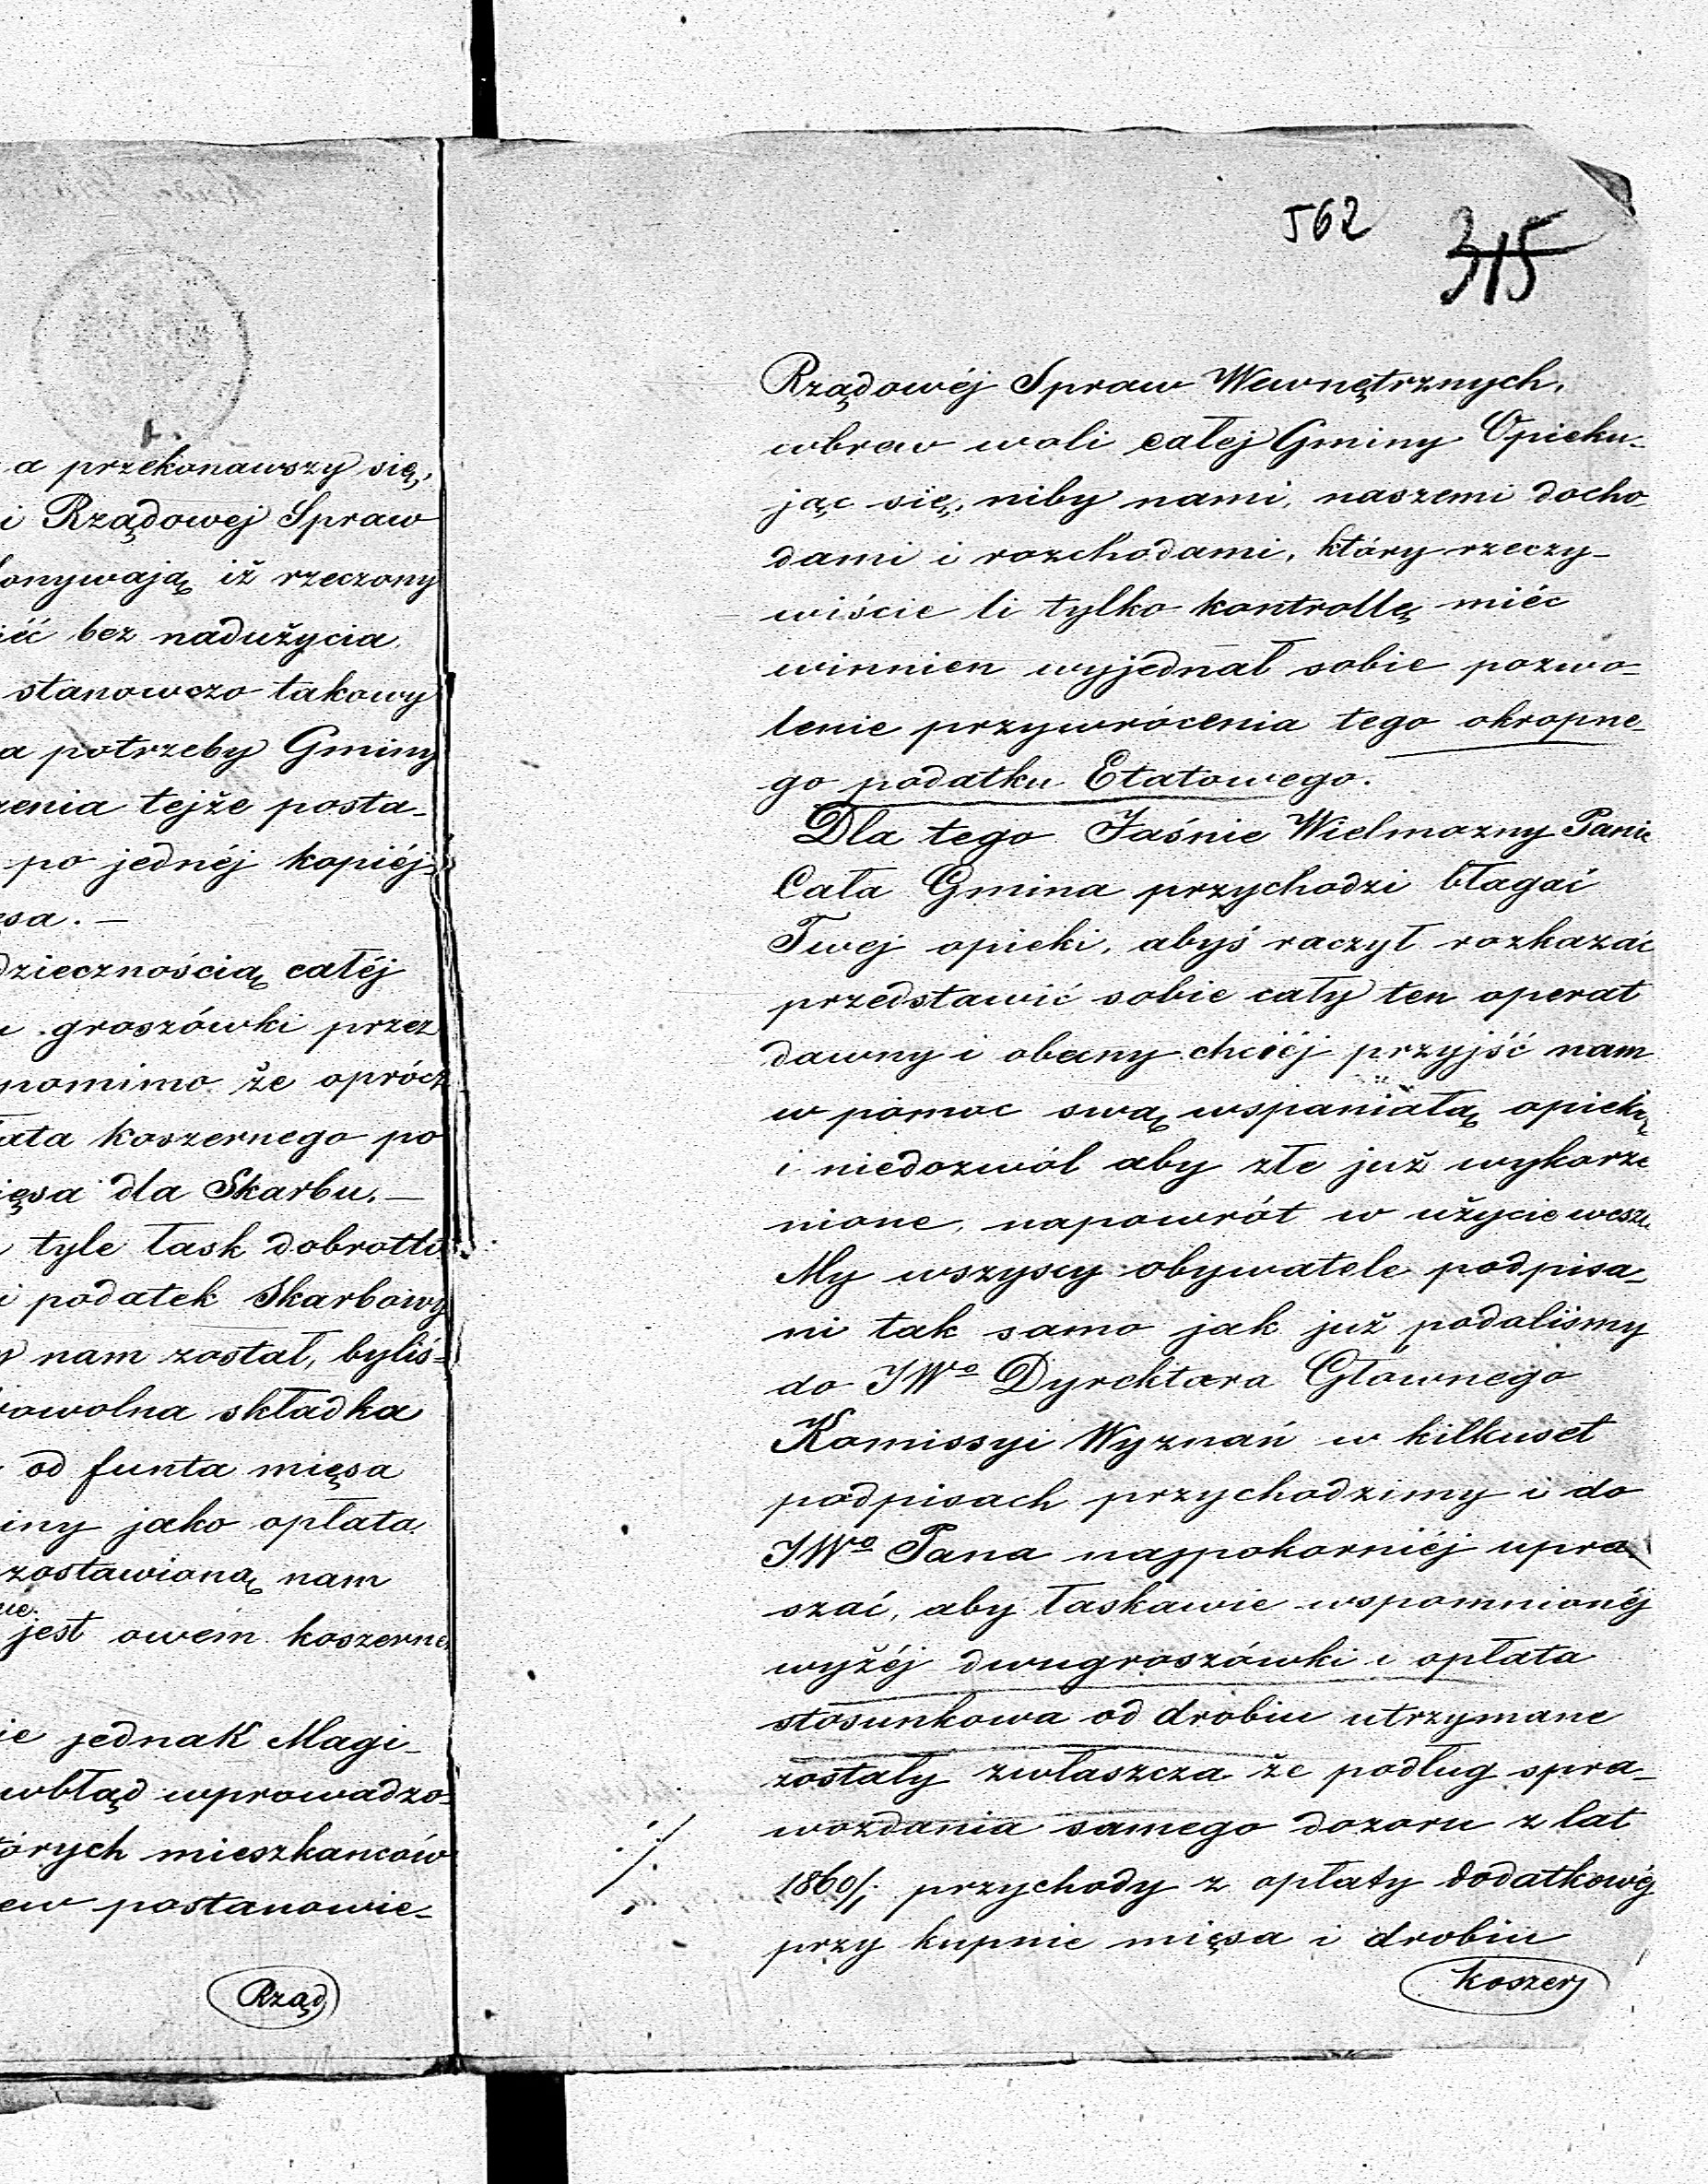 a przekonawszy się,
i Rządowej Spraw
konywają iż rzeczony
ieć bez nadużycia
stanowczo takowy
a potrzeby Gminy
zenia tejże posta-
po jednéj kopiéj-
ęsa. —
dzięcznością całéj
groszówki przez
pomimo że oprócz
łata koszernego po
ięsa dla Skarbu. —
tyle łask dobrotli
i podatek Skarbowy
nam został, byliś-
rowolna składka
od funta mięsa
iny jako opłata
zostawioną nam
nie.
jest owém koszerne
ie jednak Magi-
wbłąd wprowadzo-
tórych mieszkanców
ew postanowie-
Rząd
562
315
Rządowéj Spraw Wewnętrznych,
wbrew woli całej Gminy Opieku-
jąc się, niby nami, naszemi docho-
dami i rozchodami, który rzeczy-
wiście li tylko kontrollę miéc
winnien wyjednał sobie pozwo-
lenie przywrócenia tego okropne-
go podatku Etatowego.
Dla tego Jaśnie Wielmozny Panie
Cała Gmina przychodzi błagać
Twej opieki, abyś raczył rozkazać
przedstawić sobie cały ten operat
dawny i obecny chciéj przyjść nam
w pomoc swą wspaniałą opieką
i niedozwól aby złe już wykorze
nione, napowrót w użycie weszł
My wszyscy obywatele podpisa-
ni tak samo jak już podaliśmy
do JWo Dyrektora Głownego
Komissyi Wyznań w kilkuset
podpisach przychodzimy i do
JWo Pana najpokorniéj upra-
szać, aby łaskawie wspomnionéj
wyżéj dwugroszówki i opłata
stosunkowa od drobiu utrzymane
zostały zwłaszcza że podług spra-
wozdania samego dozoru z lat
1860/1 przychody z opłaty dodatkowéj
przy kupnie mięsa i drobiu
koszer